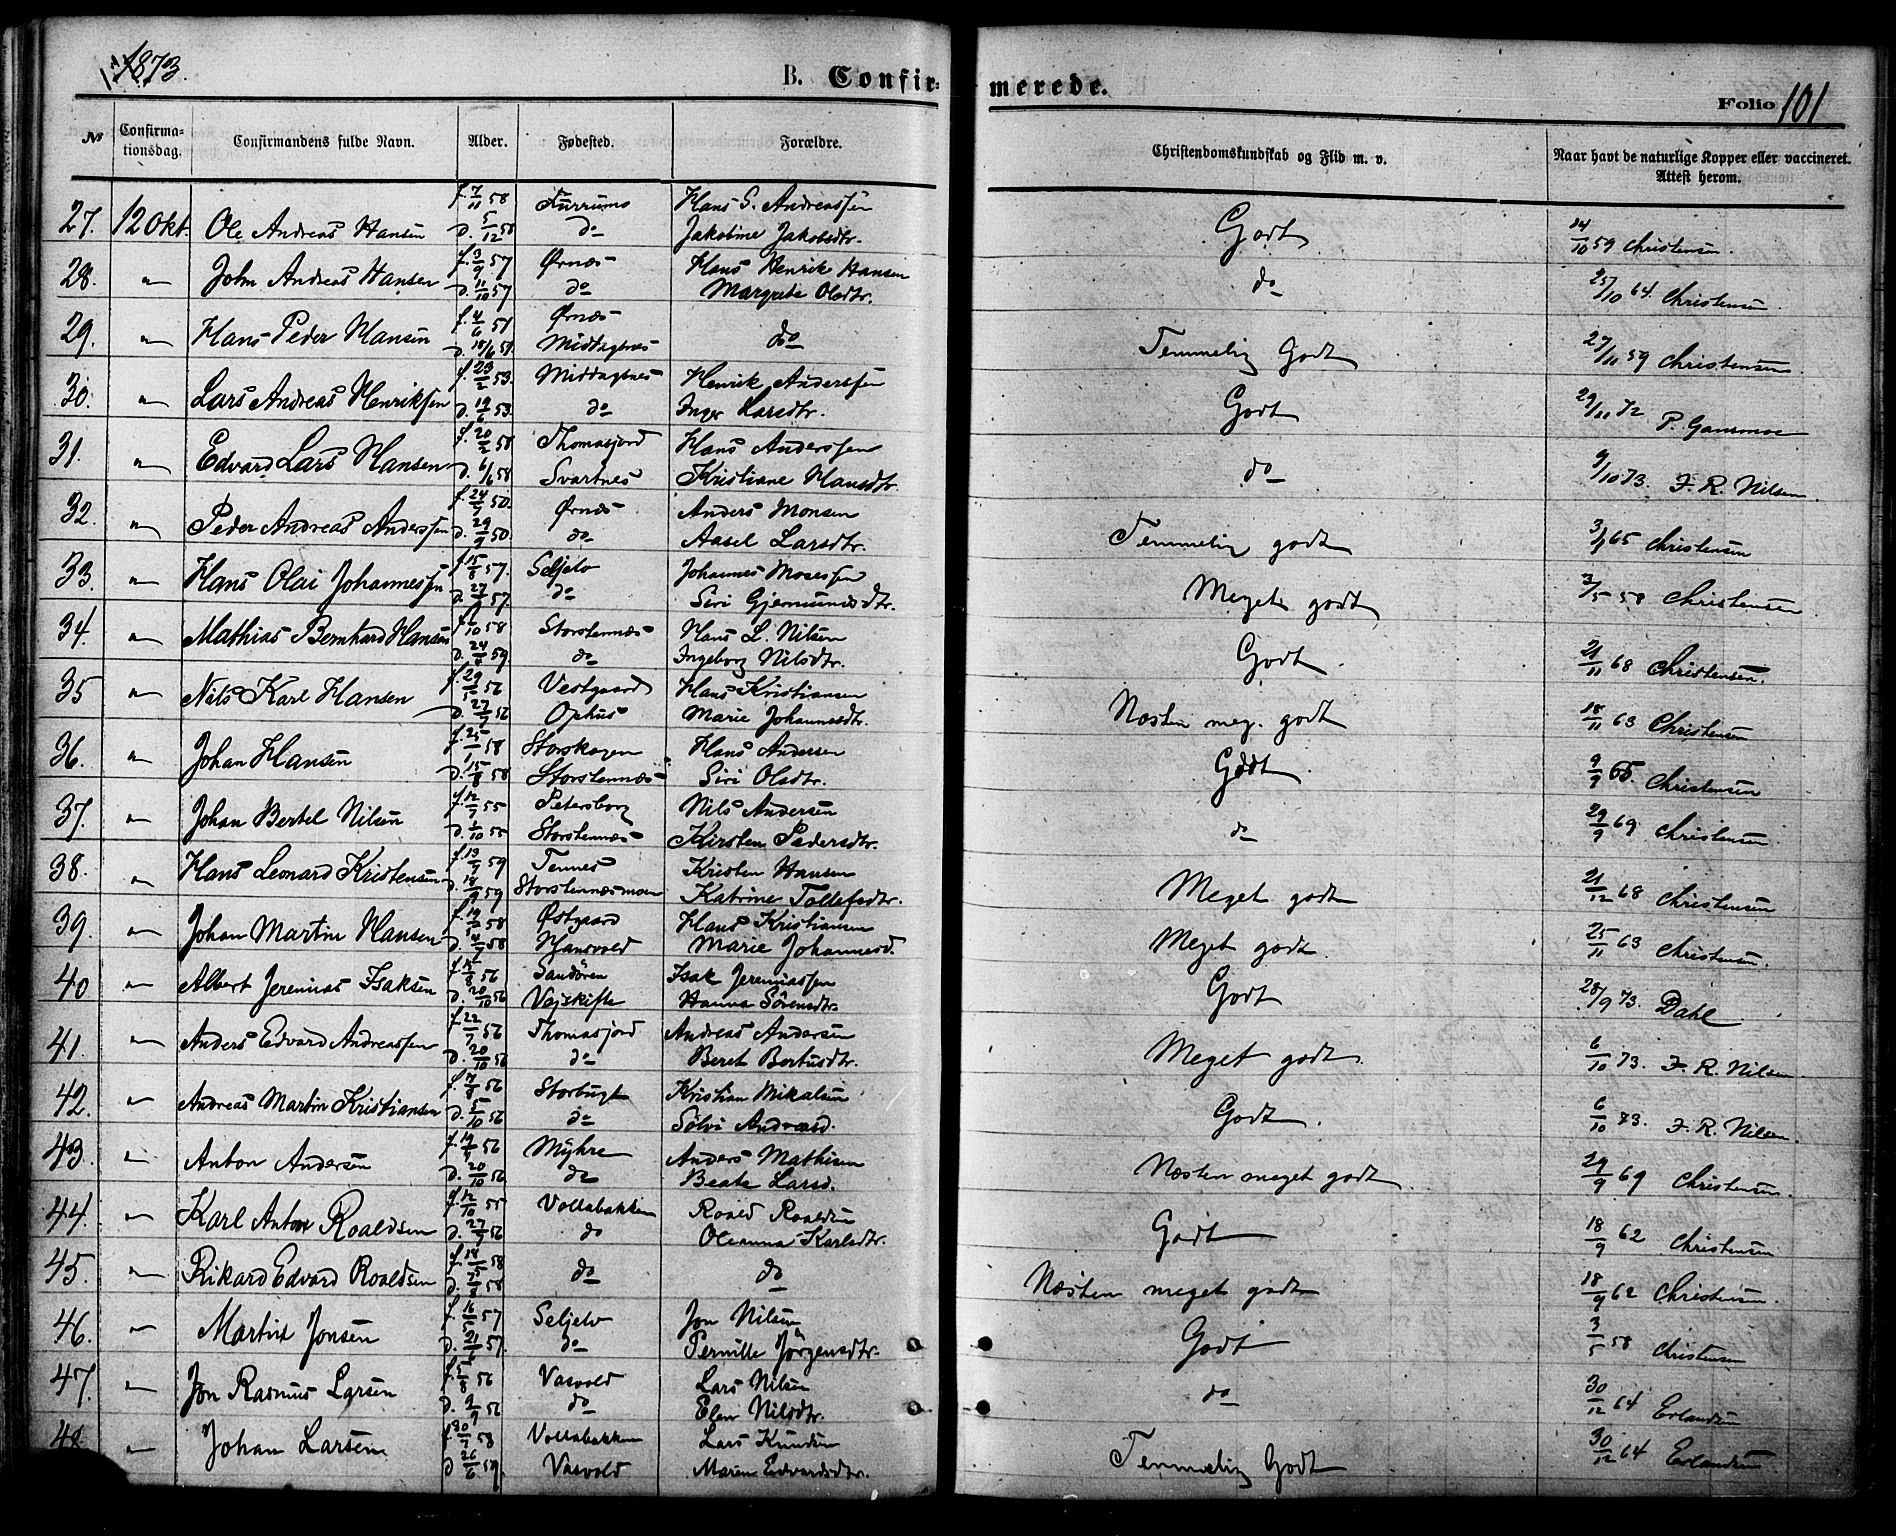 1873.
B. Confirmerede.
Folio 101
№ Confirmationsdag. Confirmandens fulde Navn. Alder. Fødested. Forældre. Christendomskundskab og Flid m. v. Naar havt de naturlige Kopper eller vaccineret. Attest herom.
27. 12 Okt. Ole Andreas Hansen f. 7/11 58 d. 5/12 58 do Hans S. Andreassen Jakobine Jakobsdtr. Godt 59 Christensen.
28. " John Andreas Hansen f. 3/9 57 d. 11/10 57 Ørnæs do Hans Henrik Hansen Margrete Olsdtr. do 25/10 64. Christensen
29. " Hans Peder Hansen f. 4/6 51 d. 18/6 51. Ørnæs Middagsnes do Temmelig Godt 27/11 59 Christensen
30. " Lars Andreas Henriksen f. 23/2 53. d. 19/6 53. Middagsnes do Henrik Anderssen Inger Larsdtr. Godt 29/11 72 P. Gansmoe
31. " Edvard Lars Hansen f. 20/2 58 d. 6/6 58 Thomasjord Svartnes Hans Anderssen Kristiane Hansdtr. do 9/10 73. F. R. Nilsen
32. " Peder Andreas Anderssen f. 24/7 50. d. 29/9 50. Ørnæs do Anders Monsen Aasel Larsdtr. Temmelig godt 3/9 65 Christensen
33. " Hans Olai Johannessen f. 15/8 57. d. 27/9 57. Seljelv do Johannes Mosessen Siri Gjermundsdtr. Meget godt 3/5 58 Christensen
34. " Mathias Bernhard Hansen 58 d. 24/4 59. Storstennæs do Hans L. Nilsen Ingeborg Nilsdtr. Godt 21/11 68 Christensen.
35 " Nils Karl Hansen f. 29/5 56 d. 27/7 56 Vestgaard Ophus Hans Kristiansen Marie Johannesdtr. Næsten meg. godt 18/11 63 Christensen
36. " Johan Hansen f. 25/1 58 d. 15/8 58 Storskogen Storstennæs Hans Andersen Siri Olsdtr. Godt 9/9 65. Christensen
37. " Johan Bertel Nilsen f. 12/7 55 d. 1/10 55 Petersborg Storstennæs Nils Andersen Kirsten Pedersdtr. do 29/9 69 Christensen.
38. " Hans Leonard Kristensen 59 d. 18/9 59 Tennes Storstennæsmoen Kristen Hansen Katrine Tollefsdtr. Meget godt 21/12 68 Christensen
39. " Johan Martin Hansen 58 58 Østgaard Hansvold Hans Kristiansen Marie Johannesd. Meget godt 25/11 63 Christensen.
40 " Albert Jeremias Isaksen 56 d. 20/10 56 Sandøren Vejskifte Isak Jeremiassen Hanna Sørensdtr. Godt 28/9 73. Dahl
41. " Anders Edvard Andreassen f. 22/7 56 d. 20/10 56 Thomasjord do Andreas Andersen Beret Bertusdtr. Meget godt 6/10 73. F. R. Nilsen
42. " Andreas Martin Kristiansen f. 7/8 56 d. 5/10 56 Storbugt do Kristian Mikalsen Sølvi Andreasd. Godt. 6/10 73. F. R. Nilsen.
43. " Anton Andersen 56 d. 20/10 56 Myhre do Anders Mathisen Beate Larsd. Næsten meget godt 29/9 69 Christensen.
44. " Karl Anton Roaldsen f. 12/10 55 d. 27/7 56 Vollabakken do Roald Roaldsen Oleanna Karlsdtr. Godt 18/9 62 Christensen
45. " Rikard Edvard Roaldsen 58 58 do do Næsten meget godt 18/9 62 Christensen.
46. " Martin Jonsen f. 16/5 57 d. 21/6 57. Seljelv do Jon Nilsen Pernille Jørgensdtr. Godt 3/5 58 Christensen
47. " Jon Rasmus Larsen f. 5/8 56 d. 9/9 56 Vasvold do Lars Nilsen Elen Nilsdtr. do 30/12 64 Erlandsen
48 " Johan Larsen 58 d. 26/6 59. Vollabakken Vasvold Lars Knudsen Maren Edvardsdtr. Temmelig Godt 30/12 64 Erlandsen